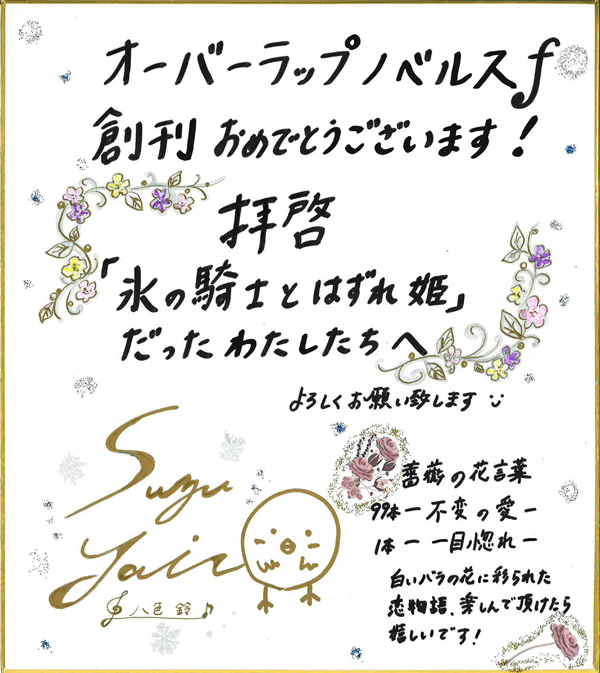 オーバーラップノベルスf
創刊 おめでとうございます!
拝啓
「氷の騎士とはずれ姫」
だったわたしたちへ
よろしくお願い致します
薔薇の花言葉
99本ー不変の愛ー
1本ー一目惚れー
白いバラの花に彩られた
恋物語、楽しんで頂けたら
嬉しいです!
Suzu
Yairo
八色 鈴